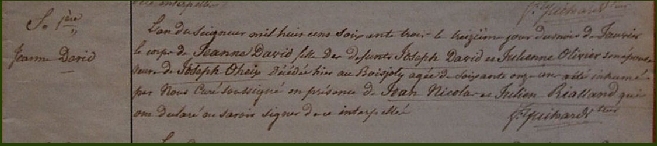 S. ère
Jeanne David
L'an du Seigneur mil huit cens soixant trois le treizième jour du mois de Janvier
le corps de Jeanne David fille de defunts Joseph David et Julienne Olivier
de Joseph décédée hier au Boisjoly agée de soixante onze an a été inhumé
par Nous Curé soussigné en présence de Jean Nicolas et Julien Réalland qui
ont déclaré ne savoir signer de ce interpellé